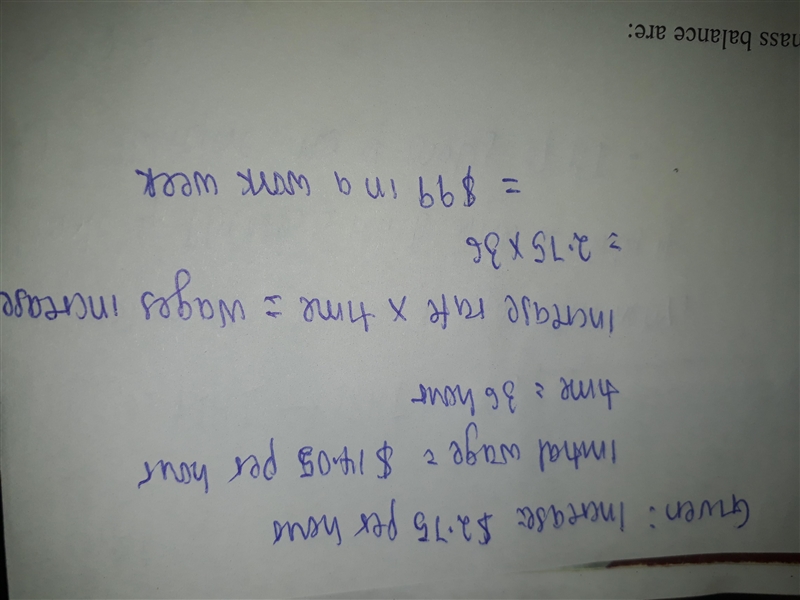 Given: Increase = $2.75 per hour
Initial wage = $14.05 per hour
time = 36 hour
increase rate × time = wages increase
= 2.75 × 36
= $99 in a work week
mass balance are: